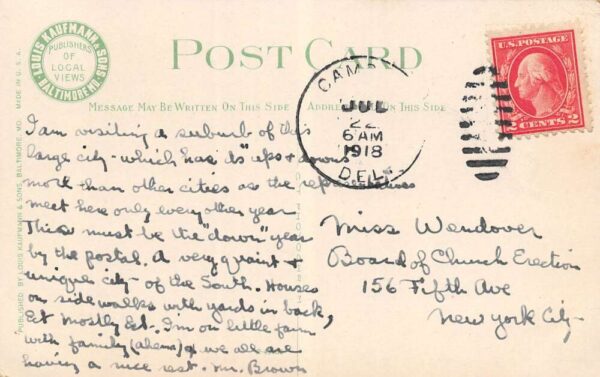 LOUIS KAUFMANN & SONS
BALTIMORE MD.
PUBLISHERS
OF
LOCAL
VIEWS
POST CARD
MESSAGE MAY BE WRITTEN ON THIS SIDE
ADDRESS ON THIS SIDE
U.S. POSTAGE
2 CENTS 2
CAM
JUL
22
6 AM
1918
DEL.
PUBLISHED BY LOUIS KAUFMANN & SONS, BALTIMORE, MD. MADE IN U.S.A.
I am visiting a suburb of this
large city - which has its "ups + downs"
more than other cities as the representatives
meet here only every other year
This must be the "down" year
by the postal. A very quaint +
unique city of the South. Houses
on side walks with yards in back,
Ect mostly Ect. I'm on little farm
with family (ahem) + we all are
having a nice rest - Mr. Brown
Miss Wendover
Board of Church Erection
156 Fifth Ave
New York City